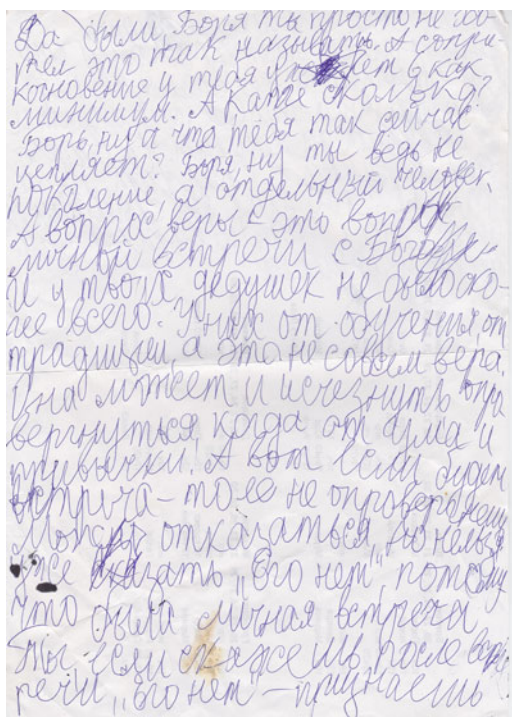 Да были, Боря ты просто не хо-
тел это так называть. А сопри-
коснование у тебя уже лет 6 как
минимум. А Кате сколько?
Борь, ну а что тебя так сейчас
цепляет? Боря, ну ты ведь не
поколение, а отдельный человек.
А вопрос веры – это вопрос
личной встречи с Богом.
И у твоих дедушек не было ско-
рее всего. У них от обучения, от
традиции, а это не совсем вера.
Она может и исчезнуть, опро
вергнуться когда от ума и
привычки. А вот если будет
встреча – то ее не опровергнешь
Можно отказаться, но нельзя
уже сказать „Его нет", потому
что была личная встреча
Ты если скажешь после вст
речи „Его нет" – признаешь